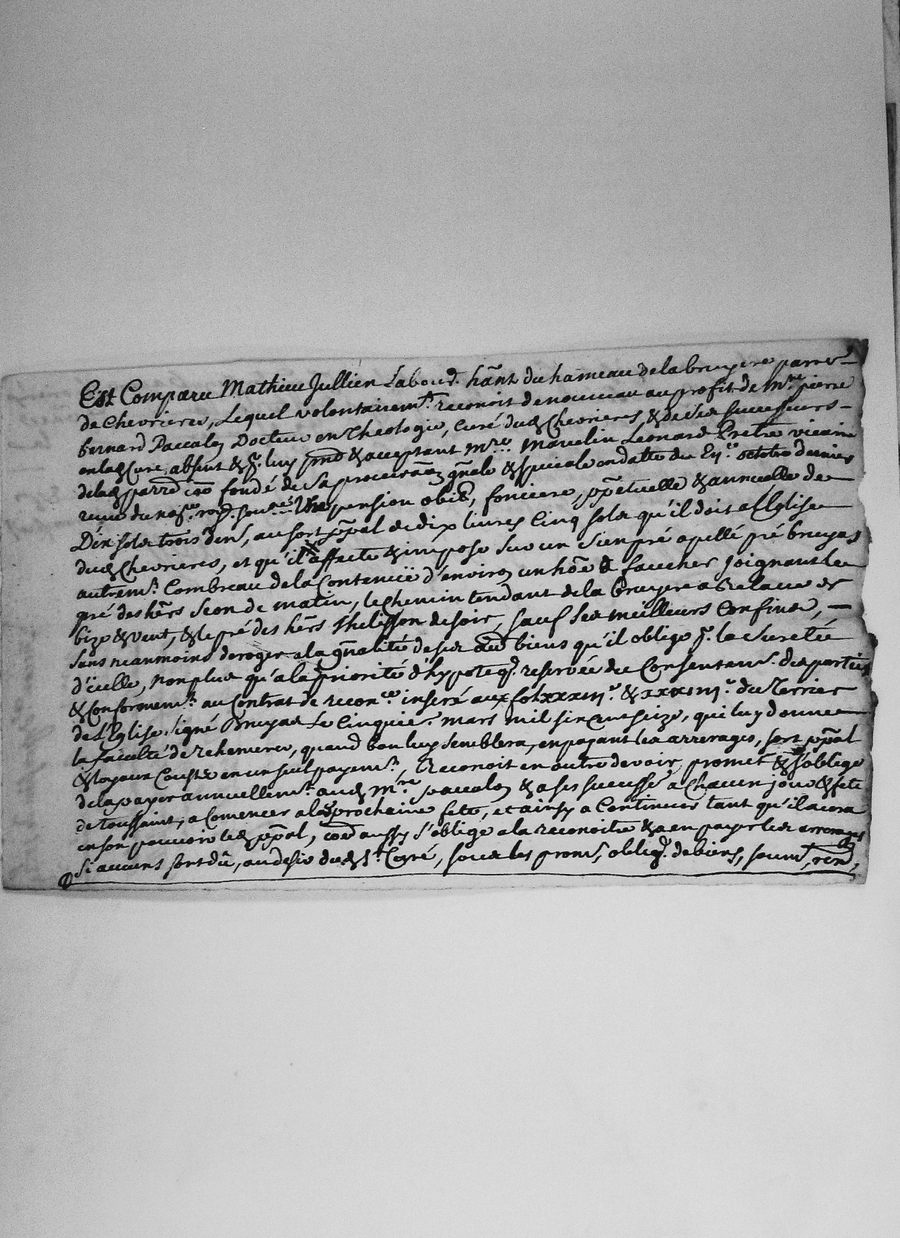 Est Comparu Mathieu Jullien Labour. hãnt du hameau de la bruyere parre
de Chevrieres, Lequel volontairem.t reconoit de nouveau au profit de M.re pierre
bernard Paccalon Docteur en Theologie, Curé dud. Chevrieres, & de ses successeurs
en lad. Cure, absent & p. luy p̃nt & acceptant M.re Marcelin Leonard Pretre vicaire
de lad. parre fondé de sa procurãon gñale & speciale en datte du octobre dernier
reçue du no.re pension foncière, p̃petuelle & annuelle de
Dix sols trois den.s, au sort p̃pal de dix livres Cinq sols qu'il doit a l'Eglise
dud. Chevrieres, et qu'il affecte & impose sur un sien pré apellé pré bruyas
autrem.t Combreau de la Contenuë d'environ un hõe de faucher joignant le
pré des hers Seon de matin, le Chemin tendant de la bruyere a de
bize & vent, & le pré des hers Thelisson de soir, sauf ses meilleurs Confins,
sans neanmoins deroger a la gñalité de ses biens qu'il oblige p. la Sureté
d'icelle, non plus qu'a la priorité d'hypoteq. reservée du Consentem.t des parties
& Conformem.t au Contrat de recon.ce inseré aux fol. & du Terrier
de l'Eglise signé Bruyas Le Cinquie. mars mil six cens seize, qui luy donne
la faculté de rehemerer, quand bon luy semblera, en payant les arrerages, sort p̃pal
& loyaux Cousts en un seul payem.t Reconoit en outre devoir, promet & s'oblige
de la payer annuellem.t aud. M.re paccalon & a ses success.rs a Chacun jour & fete
de Toussaint, a Comencer a la prochaine fete, et ainsy a Continuer tant qu'il aura
en son pouvoir led. p̃pal, Coẽ aussy s'oblige a la reconoitre & a en payer les arrerages
si aucuns sont dû, au desir dud. S.r Curé, sous les prom.s, obliq. de biens, soum.s, ren.,